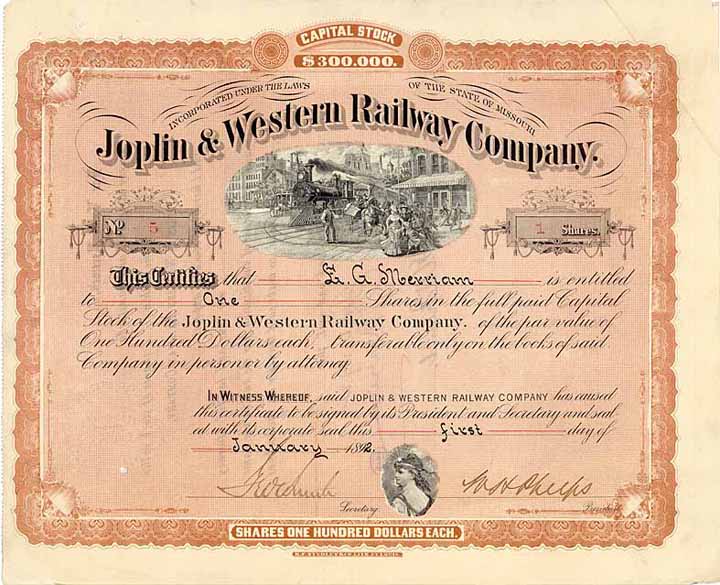 CAPITAL STOCK
$300,000.
INCORPORATED UNDER THE LAWS OF THE STATE OF MISSOURI
Joplin & Western Railway Company.
No. 5
1 Shares.
This Certifies that E. G. Merriam is entitled
to One Shares in the full paid Capital
Stock of the Joplin & Western Railway Company. of the par value of
One Hundred Dollars each, transferable only on the books of said
Company in person or by attorney.
IN WITNESS WHEREOF, said JOPLIN & WESTERN RAILWAY COMPANY has caused
this certificate to be signed by its President and Secretary and seal-
ed with its corporate seal this first day of
January 1892.
W H Phelps
Secretary. President.
SHARES ONE HUNDRED DOLLARS EACH.